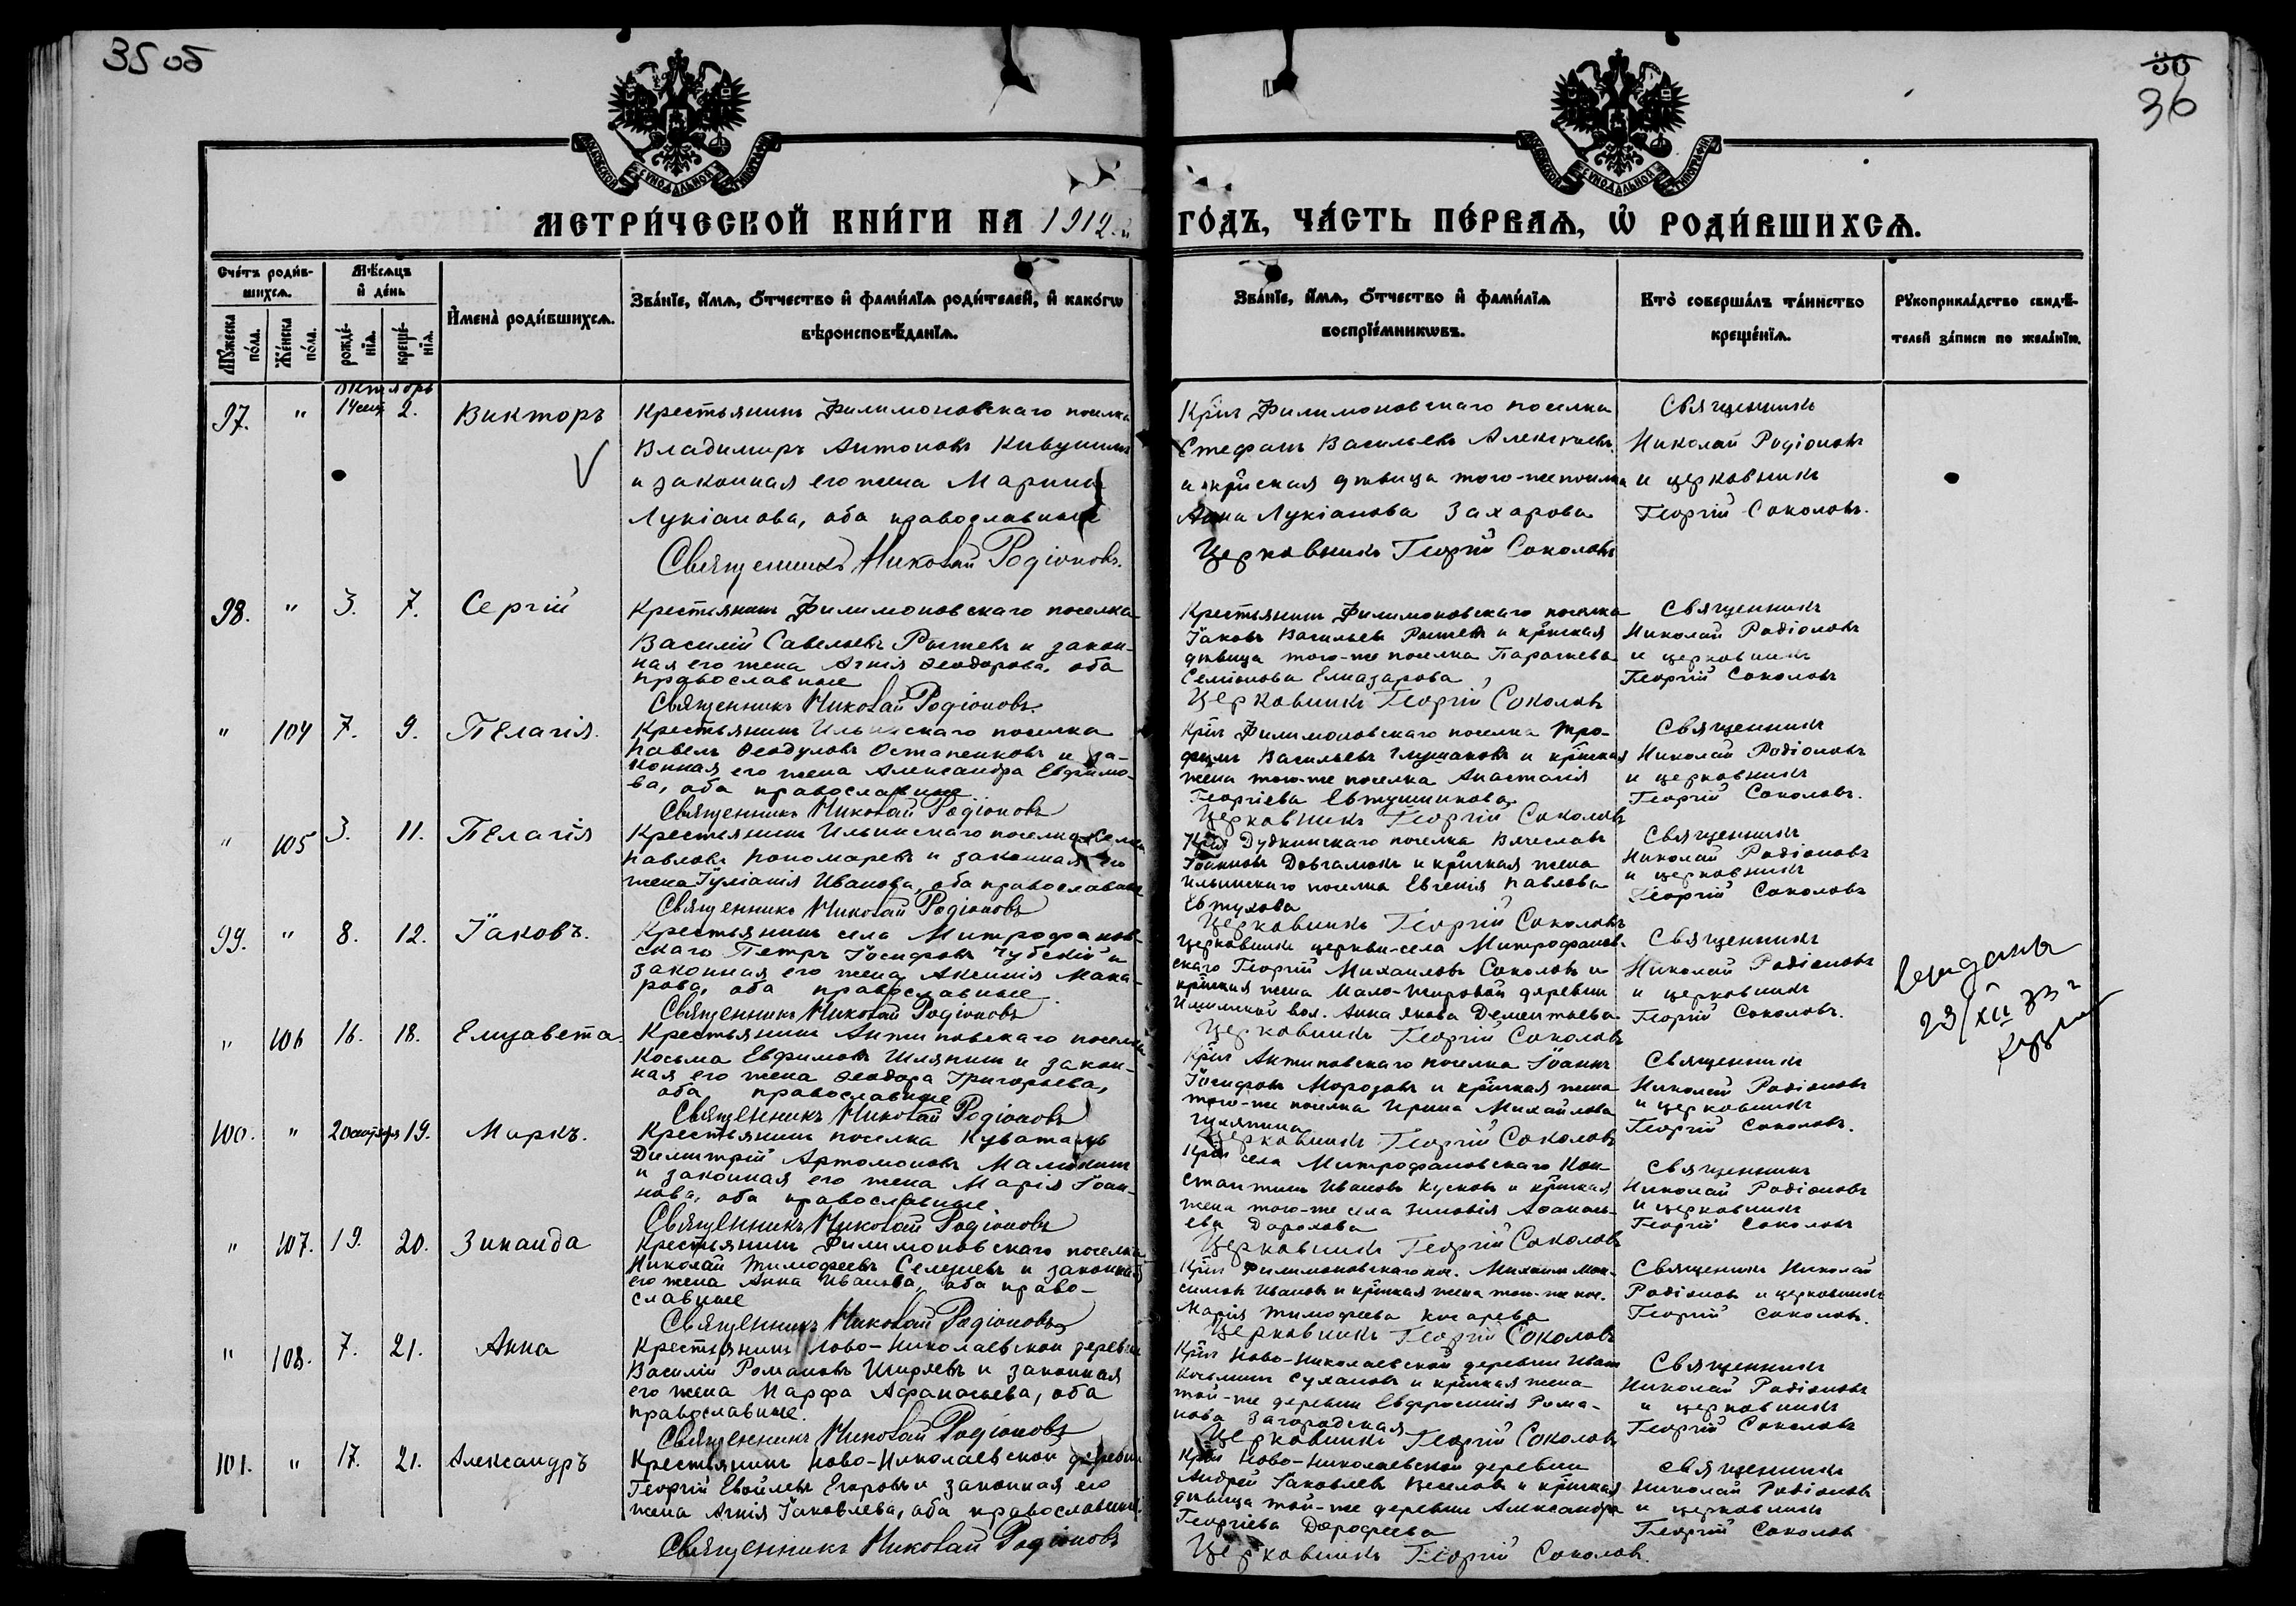 35 об
36
МОСКОВСКОЙ СѴНОДАЛЬНОЙ ТИПОГРАФІИ
МОСКОВСКОЙ СѴНОДАЛЬНОЙ ТИПОГРАФІИ
МЕТРИ́ЧЕСКОЙ КНИ́ГИ НА 1912
ГО́ДЪ, ЧА́СТЬ ПЕ́РВАѦ, Ѡ҆ РОДИ́ВШИХСѦ.
Сче́тъ роди́в-
шихсѧ.
Мꙋ́жеска по́ла.
Же́нска по́ла.
Мѣ́сѧцъ
и҆ де́нь
рожде́-
нїѧ.
креще́-
нїѧ.
И҆мена̀ роди́вшихсѧ.
Зва́нїе, и҆́мѧ, ѻ҆́тчество и҆ фами́лїѧ роди́телей, и҆ како́гѡ
вѣроисповѣ́данїѧ.
Зва́нїе, и҆́мѧ, ѻ҆́тчество и҆ фами́лїѧ
воспрїе́мникѡвъ.
Кто̀ соверша́лъ та́инство
креще́нїѧ.
Рꙋкоприкла́дство свидѣ́-
телей за́писи по жела́нїю.
Октябрь
97. " 14 сент. 2. Викторъ
Крестьянинъ Филимоновскаго поселка
Владимиръ Антоновъ
и законная его жена Марина
Лукіанова, оба православные
Священникъ Николай Родіоновъ.
Кр̃нъ Филимоновскаго поселка
Стефанъ Васильевъ Алексѣевъ
и кр̃нская дѣвица того-же поселка
Анна Лукіанова Захарова
Церковникъ Георгій Соколовъ
Священникъ
Николай Родіоновъ
и церковникъ
Георгій Соколовъ.
98. " 3. 7. Сергій
Крестьянинъ Филимоновскаго поселка
Василій Савельевъ и закон-
ная его жена Агнія Ѳеодорова, оба
православные
Священникъ Николай Родіоновъ.
Крестьянинъ Филимоновскаго поселка
Іаковъ Васильевъ и кр̃нская
дѣвица того-же поселка Параскева
Семіонова Елиазарова
Церковникъ Георгій Соколовъ
Священникъ
Николай Родіоновъ
и церковникъ
Георгій Соколовъ
" 104 7. 9. Пелагія.
Крестьянинъ Ильинскаго поселка
Павелъ Ѳеодуловъ Остапенковъ и за-
конная его жена Александра Евфимо-
ва, оба православные
Священникъ Николай Родіоновъ
Кр̃нъ Филимоновскаго поселка Тро-
фимъ Васильевъ Глушаковъ и кр̃нская
жена того-же поселка Анастасія
Георгіева Евтушикова
Церковникъ Георгій Соколовъ
Священникъ
Николай Родіоновъ
и церковникъ
Георгій Соколовъ.
" 105 3. 11. Пелагія
Крестьянинъ Ильинскаго поселка
Павловъ Пономаревъ и законная его
жена Іуліанія Иванова, оба православные
Священникъ Николай Родіоновъ
Кр̃нъ Дудкинскаго поселка Вячеславъ
Іоанновъ Довгалюкъ и кр̃нская жена
Ильинскаго поселка Евгенія Павлова
Евтухова
Церковникъ Георгій Соколовъ
Священникъ
Николай Родіоновъ
и церковникъ
Георгій Соколовъ
99. " 8. 12. Іаковъ.
Крестьянинъ села Митрофанов-
скаго Петръ Іосифовъ Чубскій и
законная его жена Аксинія Мака-
рова, оба православные.
Священникъ Николай Родіоновъ
Церковникъ церкви-села Митрофанов-
скаго Георгій Михаиловъ Соколовъ и
кр̃нская жена Мало- деревни
вол. Анна Якова Дементьева
Церковникъ Георгій Соколовъ
Священникъ
Николай Родіоновъ
и церковникъ
Георгій Соколовъ.
23/XII
" 106 16. 18. Елизавета.
Крестьянинъ Антиповскаго поселка
Косьма Евфимовъ Шляпинъ и закон-
ная его жена Ѳеодора Григорьева,
оба православные
Священникъ Николай Родіоновъ
Кр̃нъ Антиповскаго поселка Іоаннъ
Іосифовъ Морозовъ и кр̃нская жена
того-же поселка Ирина Михайлова
Шляпина
Церковникъ Георгій Соколовъ
Священникъ
Николай Родіоновъ
и церковникъ
Георгій Соколовъ.
100. " 19. Маркъ.
Крестьянинъ поселка
Димитрій Артомоновъ
и законная его жена Марія Іоан-
нова, оба православные
Священникъ Николай Родіоновъ
Кр̃нъ села Митрофановскаго Кон-
стантинъ Ивановъ Кусковъ и кр̃нская
жена того-же села Зиновія Аѳанась-
ева
Церковникъ Георгій Соколовъ
Священникъ
Николай Родіоновъ
и церковникъ
Георгій Соколовъ
" 107. 19. 20. Зинаида
Крестьянинъ Филимоновскаго поселка
Николай Тимофеевъ и законная
его жена Анна Иванова, оба право-
славные
Священникъ Николай Родіоновъ
Кр̃нъ Филимоновскаго пос. Михаилъ Мак-
симовъ Ивановъ и кр̃нская жена того-же пос.
Марія Тимофеева Косарева
Церковникъ Георгій Соколовъ
Священникъ Николай
Родіоновъ и церковникъ
Георгій Соколовъ.
" 108. 7. 21. Анна
Крестьянинъ Ново-Николаевской деревни
Василій Романовъ Ширяевъ и законная
его жена Марфа Афанасьева, оба
православные.
Священникъ Николай Родіоновъ
Кр̃нъ Ново-Николаевской деревни Иванъ
Козьминъ Сухановъ и кр̃нская жена
той-же деревни Евфросинія Рома-
нова Загородская
Церковникъ Георгій Соколовъ
Священникъ
Николай Родіоновъ
и церковникъ
Георгій Соколовъ
101. " 17. 21. Александръ
Крестьянинъ Ново-Николаевской деревни
Георгій Егоровъ и законная его
жена Агнія Іаковлева, оба православные.
Священникъ Николай Родіоновъ
Кр̃нъ Ново-Николаевской деревни
Андрей Іаковлевъ Веселовъ и кр̃нская
дѣвица той-же деревни Александра
Георгіева Дорофеева
Церковникъ Георгій Соколовъ.
Священникъ
Николай Родіоновъ
и церковникъ
Георгій Соколовъ